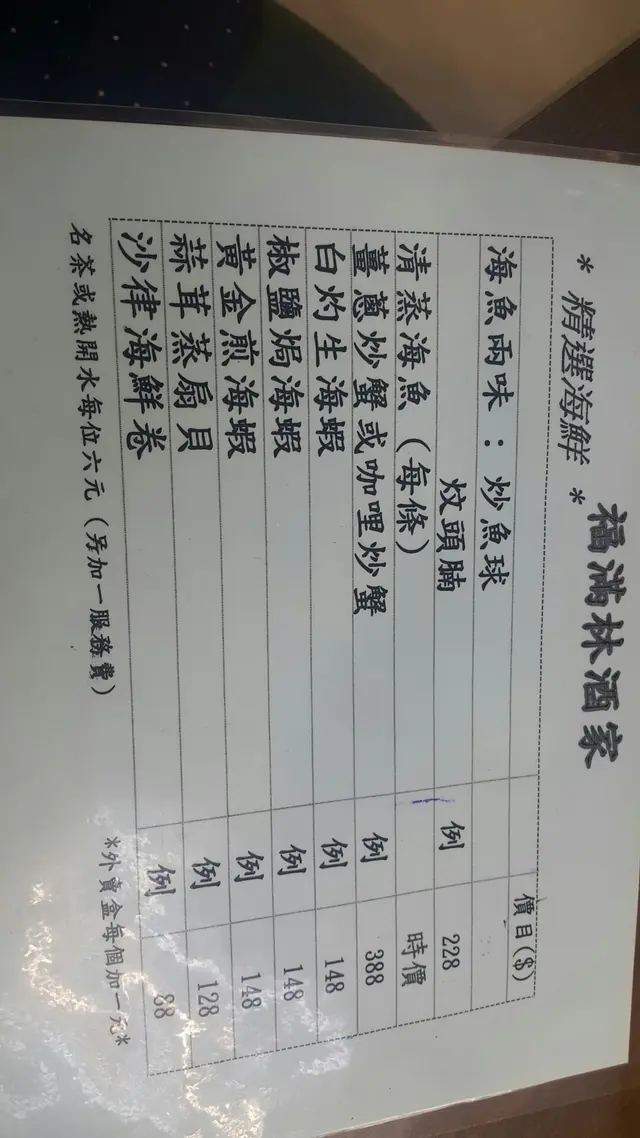 福滿林酒家
* 精選海鮮 *
價目($)
海魚兩味：炒魚球
炆頭腩 例 228
清蒸海魚（每條） 時價
薑蔥炒蟹或咖哩炒蟹 例 388
白灼生海蝦 例 148
椒鹽焗海蝦 例 148
黃金煎海蝦 例 148
蒜茸蒸扇貝 例 128
沙律海鮮卷 例 88
名茶或熱開水每位六元（另加一服務費） *外賣盒每個加一元*